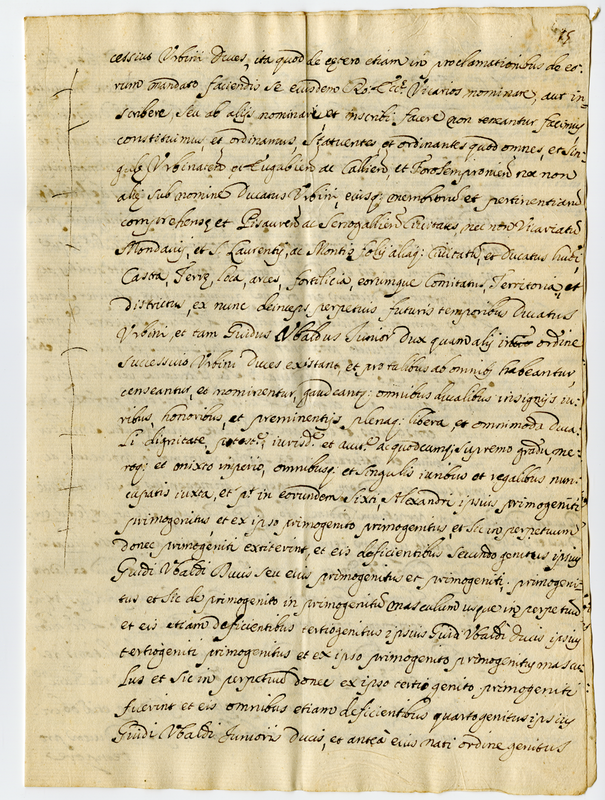 15
cessive Urbini Duces, ita quod de cetero etiam in proclamationibus de eo-
rum mandato faciendis se eiusdem Ro: Ecc.ę Vicarios nominare, aut in
scribere, seu ab alijs nominari, et inscribi facere non teneantur facimus
constituimus, et ordinamus, Statuentes, et ordinantes quod omnes, et sin-
gulę Urbinaten ac Eugubien ac Callien, et Forosempronien nec non
alię sub nomine Ducatus Urbini eiusq; membrorum et pertinentiarũ
comprehensę et Pisauren ac Senogallien Civitates, nec non Vicariatus
Mondavij, et S. Laurentij, ac Montis folij aliaq: Civitatũ, et Ducatus huiusmodi
Castra, Terrę, loca, arces, fortilicia, eorumque Comitatus, Territoria, et
districtus, ex nunc deinceps perpetuis futuris temporibus Ducatus
Urbini, et tam Guidus Ubaldus Junior Dux quam alij ordine
successivo Urbini Duces existant, et pro talibus ab omnibꝫ habeantur,
censeantur, et nominentur, gaudeantq: omnibus ducalibus insignijs iu-
ribus, honoribus, et preminentijs plenaq: libera et omnimoda duca-
li dignitate, potest.e, iurisd.e et auct.e ac quocumq; supremo gradu, me-
roq: et mixto imperio, omnibusq: et singulis iuribus et regalibus nun-
cupatis iuxta, et in eorundem Sixti Alexandri ipsius primogeniti
primogenitus, et ex ipso primogenito primogenitus, et sic in perpetuum
donec primogeniti extiterint, et eis deficientibus secundo genitus ipsius
Guidi Ubaldi Ducis seu eius primogenitus et primogeniti, primogeni-
tus et sic de primogenito in primogenitũ masculum usque in perpetuũ
et eis etiam deficientibus tertiogenitus ipsius Guidi Ubaldi Ducis ipsius
tertiogeniti primogenitus et ex ipso primogenito primogenitus mascu-
lus et sic in perpetuũ donec ex ipso tertio genito primogeniti
fuerint et eis omnibus etiam deficientibus quartogenitus ipsius
Guidi Ubaldi Junioris Ducis, et anteà eius nati ordine genitus